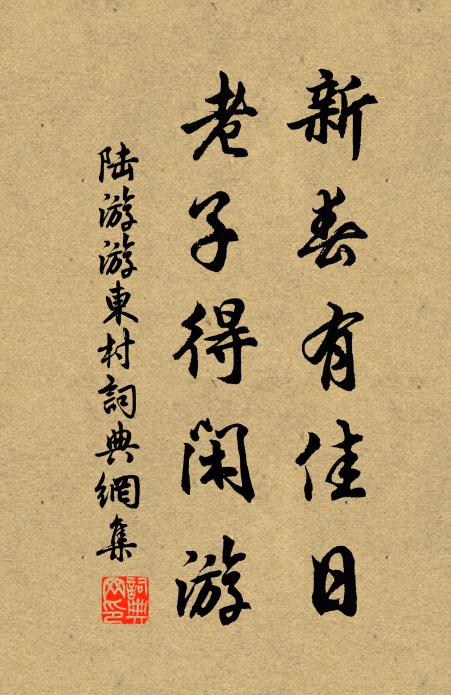 新春有佳日
老子得闲游
陆游游東村詞典網集
詞典网印